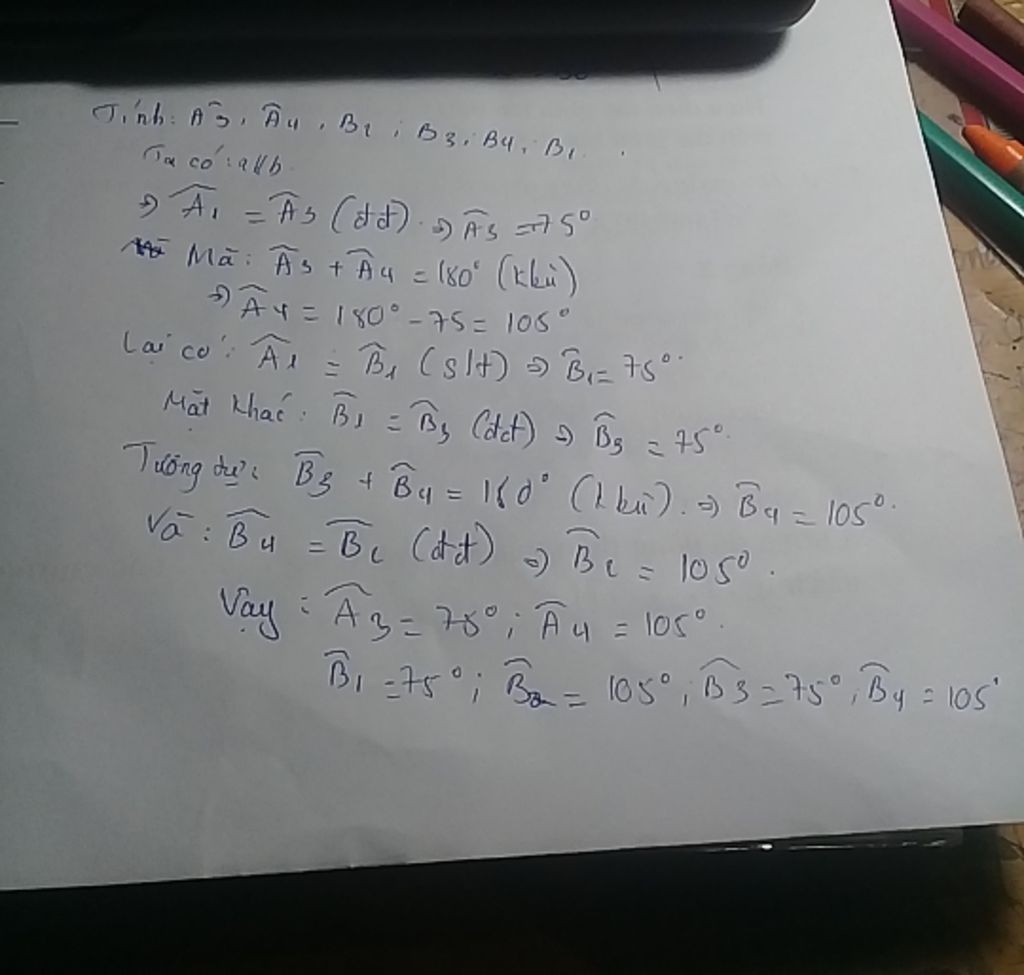 Tính: Â3, Â4, B2, B3, B4, B1.
Ta có: a//b
=> Â1 = Â3 (đđ). => Â3 = 75°
Mà: Â3 + Â4 = 180° (kbù)
=> Â4 = 180° - 75 = 105°
Lại có: Â1 = B̂1 (slt) => B̂1 = 75°.
Mặt khác: B̂1 = B̂3 (đđ) => B̂3 = 75°.
Tương tự: B̂3 + B̂4 = 180° (kbù). => B̂4 = 105°.
Và: B̂4 = B̂2 (đđ) => B̂2 = 105°.
Vậy: Â3 = 75°; Â4 = 105°.
B̂1 = 75°; B̂2 = 105°; B̂3 = 75°, B̂4 = 105°